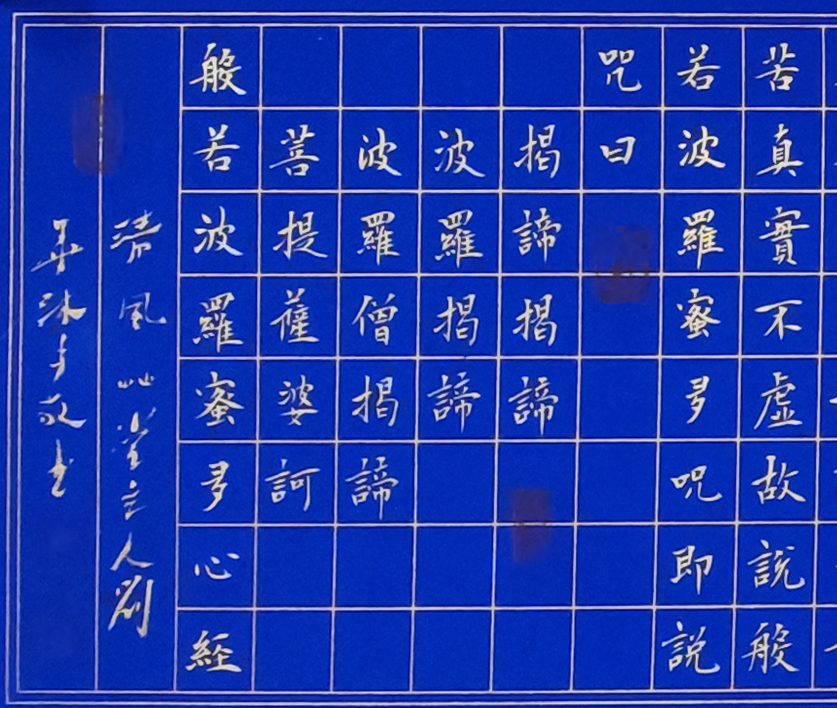 苦真實不虛故說般
若波羅蜜多咒即說
咒曰
揭諦揭諦
波羅揭諦
波羅僧揭諦
菩提薩婆訶
般若波羅蜜多心経
清風山堂主人劉
沐手敬书